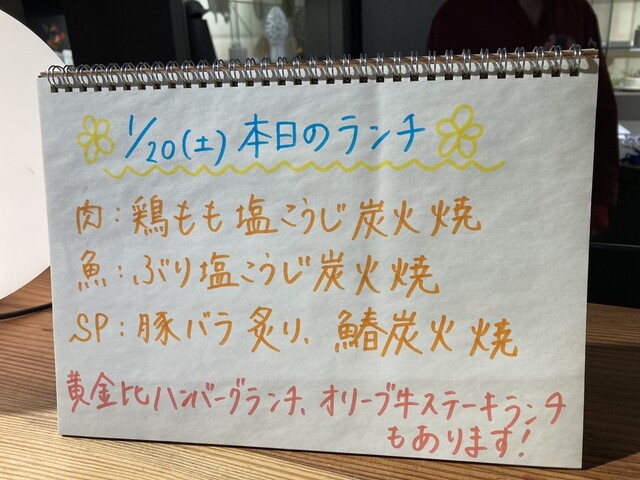 1/20(土)本日のランチ
肉:鶏もも塩こうじ炭火焼
魚:ぶり塩こうじ炭火焼
SP:豚バラ炙り、鰆炭火焼
黄金比ハンバーグランチ、オリーブ牛ステーキランチ
もあります!